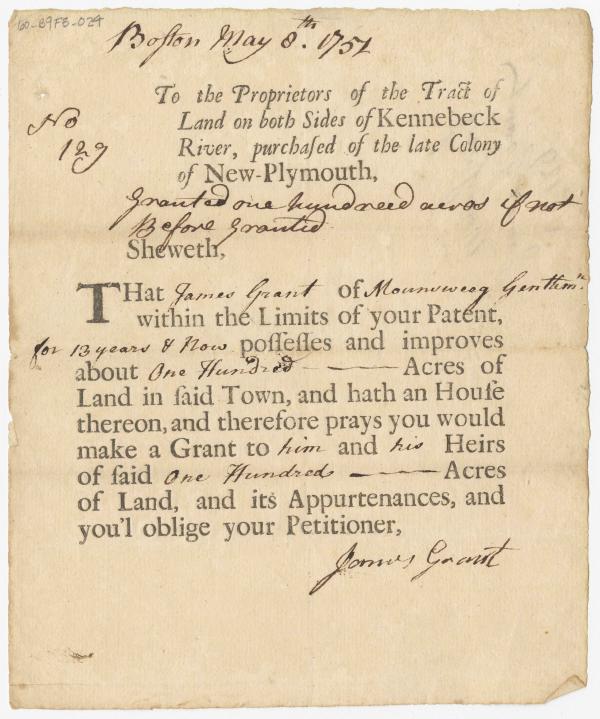 60-89FB-024
Boſton May 8.th 1751
To the Proprietors of the Tract of
Land on both Sides of Kennebeck
River, purchaſed of the late Colony
of New-Plymouth,
No
129
Granted one hundreed acres if not
Before Granted
Sheweth,
THat James Grant of Mounsweeg Gentlemn.
within the Limits of your Patent,
for 13 years & Now poſſeſſes and improves
about One Hundred Acres of
Land in ſaid Town, and hath an Houſe
thereon, and therefore prays you would
make a Grant to him and his Heirs
of ſaid One Hundred Acres
of Land, and its Appurtenances, and
you'l oblige your Petitioner,
James Grant